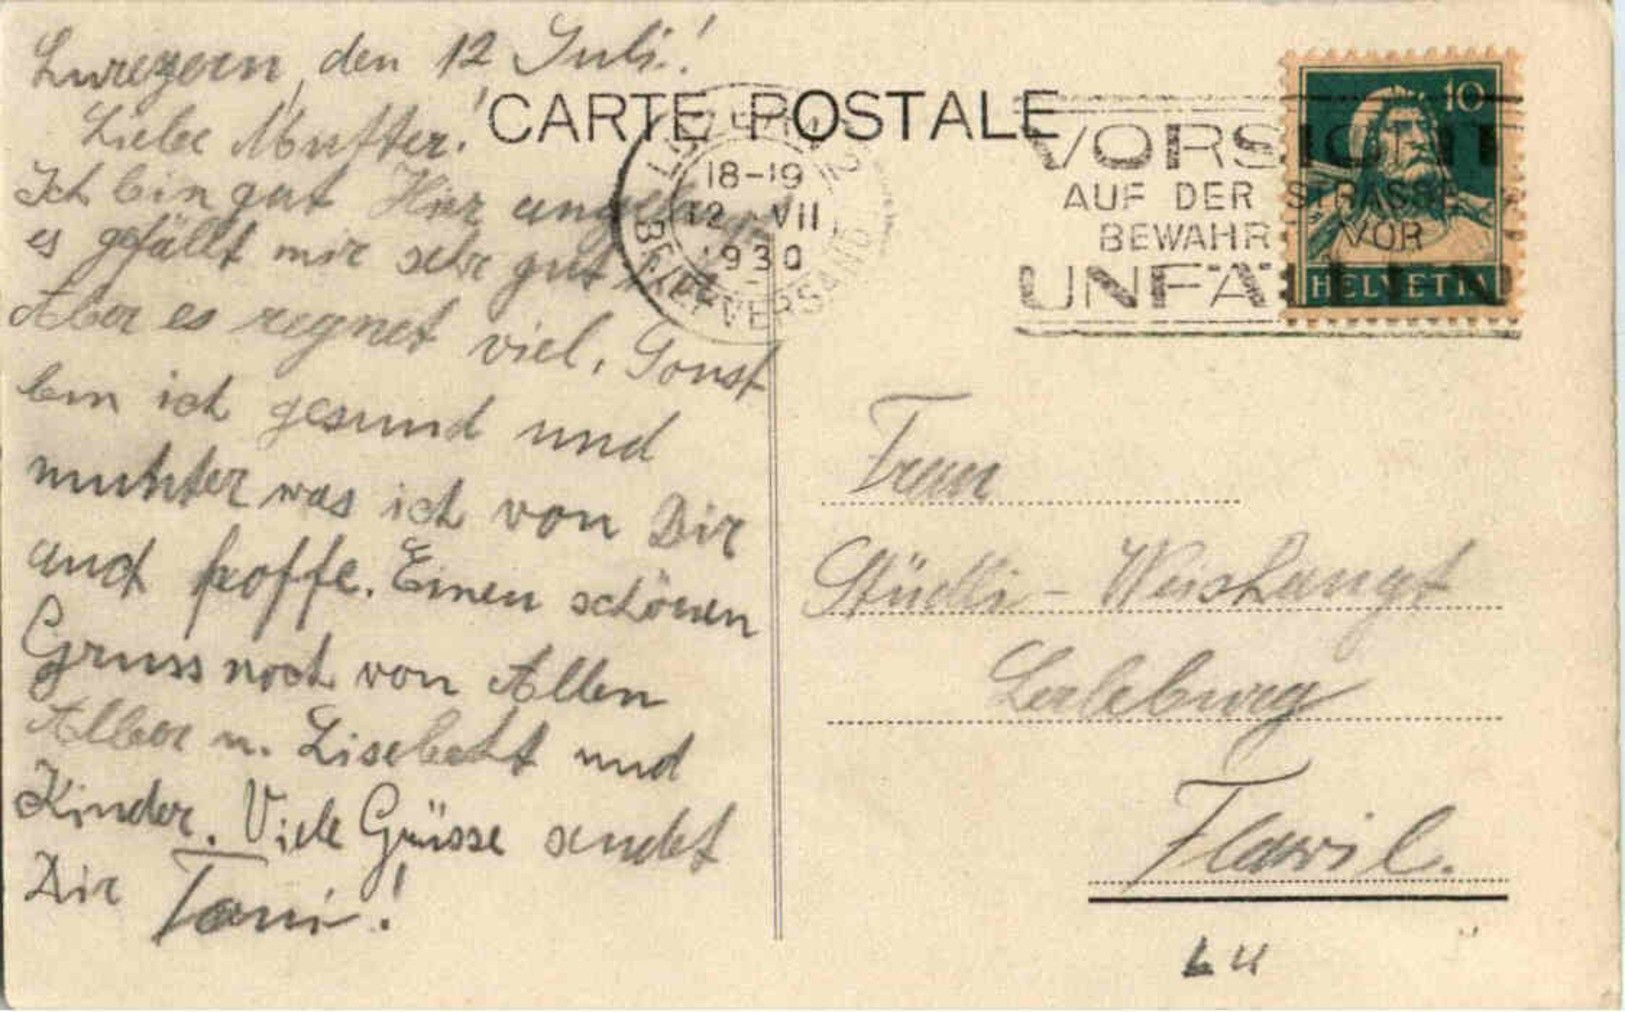 Lurezern, den 12 Juli!
Liebe Mutter!
Ich bin gut Hier
es gefällt mir sehr gut
Aber es regnet viel, Sonst
bin ich gesund und
munter was ich von Dir
auch hoffe. Einen schönen
Gruss noch von Allen
Alber u. Lisebeht und
Kinder. Viele Grüsse sendet
Dir Toni!
CARTE POSTALE
18-19
12 VII
1930
BRIEFVERSAND
VORSICHT
AUF DER STRASSE
BEWAHRT VOR
UNFÄLLEN
10
HELVETIA
Frau
Städli-
Flawil.